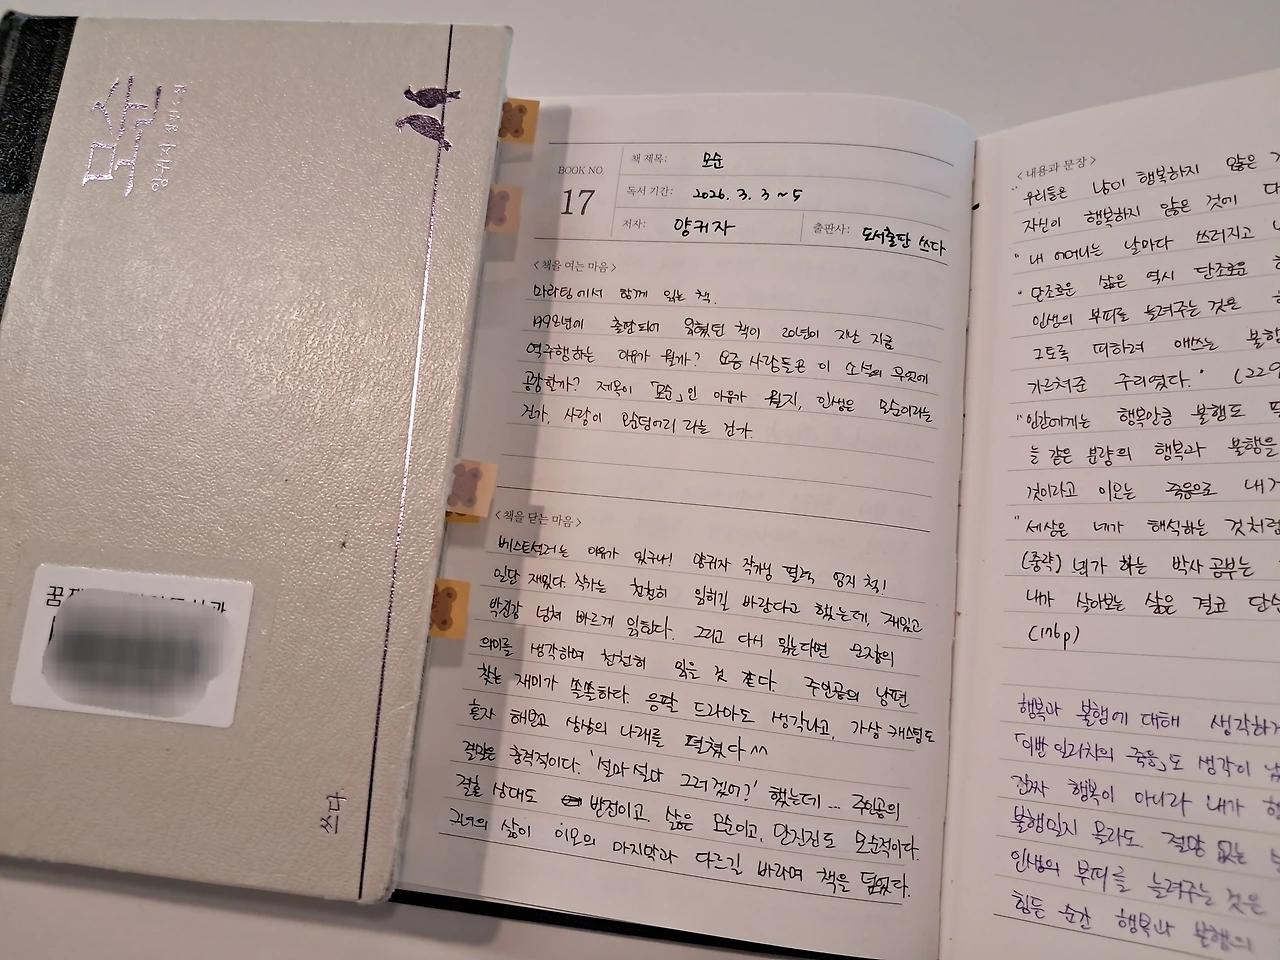 모순
양귀자 장편소설
쓰다.
BOOK NO.
17
책 제목: 모순
독서 기간: 2026. 3. 3 ~ 5
저자: 양귀자
출판사: 도서출판 쓰다
<책을 여는 마음>
마라팅에서 함께 읽는 책.
1998년에 출판되어 읽혔던 책이 20년이 지난 지금
역주행하는 이유가 뭘까? 요즘 사람들은 이 소설의 무엇에
공감할까? 제목이 「모순」인 이유가 뭘지, 인생은 모순이라는
건가, 사랑이 모순덩어리라는 건가.
<책을 닫는 마음>
베스트셀러는 이유가 있구나! 양귀자 작가님 필력 엄지 척!
일단 재밌다. 작가는 천천히 읽히길 바란다고 했는데, 재밌고
박진감 넘쳐 빠르게 읽힌다. 그리고 다시 읽는다면 문장의
의미를 생각하며 천천히 읽을 것 같다. 주인공의 남편
찾는 재미가 쏠쏠하다. 응팔 드라마도 생각나고, 가상 캐스팅도
혼자 해보고 상상의 나래를 펼쳤다^^
결말은 충격적이다. '설마설마 그러겠어?' 했는데... 주인공의
결혼 상대도 반전이고, 삶은 모순이고, 안진진도 모순적이다.
그녀의 삶이 이모의 마지막과 다르길 바라며 책을 덮었다.
<내용과 문장>
"우리들은 남이 행복하지 않은
자신이 행복하지 않은 것에
"내 어머니는 날마다 쓰러지고
"단조로운 삶은 역시 단조로운
인생의 부피를 늘려주는 것은
그토록 피하려 애쓰는 불행
가르쳐준 주리였다." (229
"인간에게는 행복만큼 불행도
늘 같은 분량의 행복과 불행을
것이라고 이모는 죽음으로 내게
"세상은 네가 해석하는 것처럼
(중략) 네가 하는 박사 공부는
내가 살아보는 삶은 결코 단순
(176p)
행복과 불행에 대해 생각하게
「이반 일리치의 죽음」도 생각이
진짜 행복이 아니라 내가
불행일지 몰라도. 절망 없는
인생의 부피를 늘려주는 것은
힘든 순간 행복과 불행의